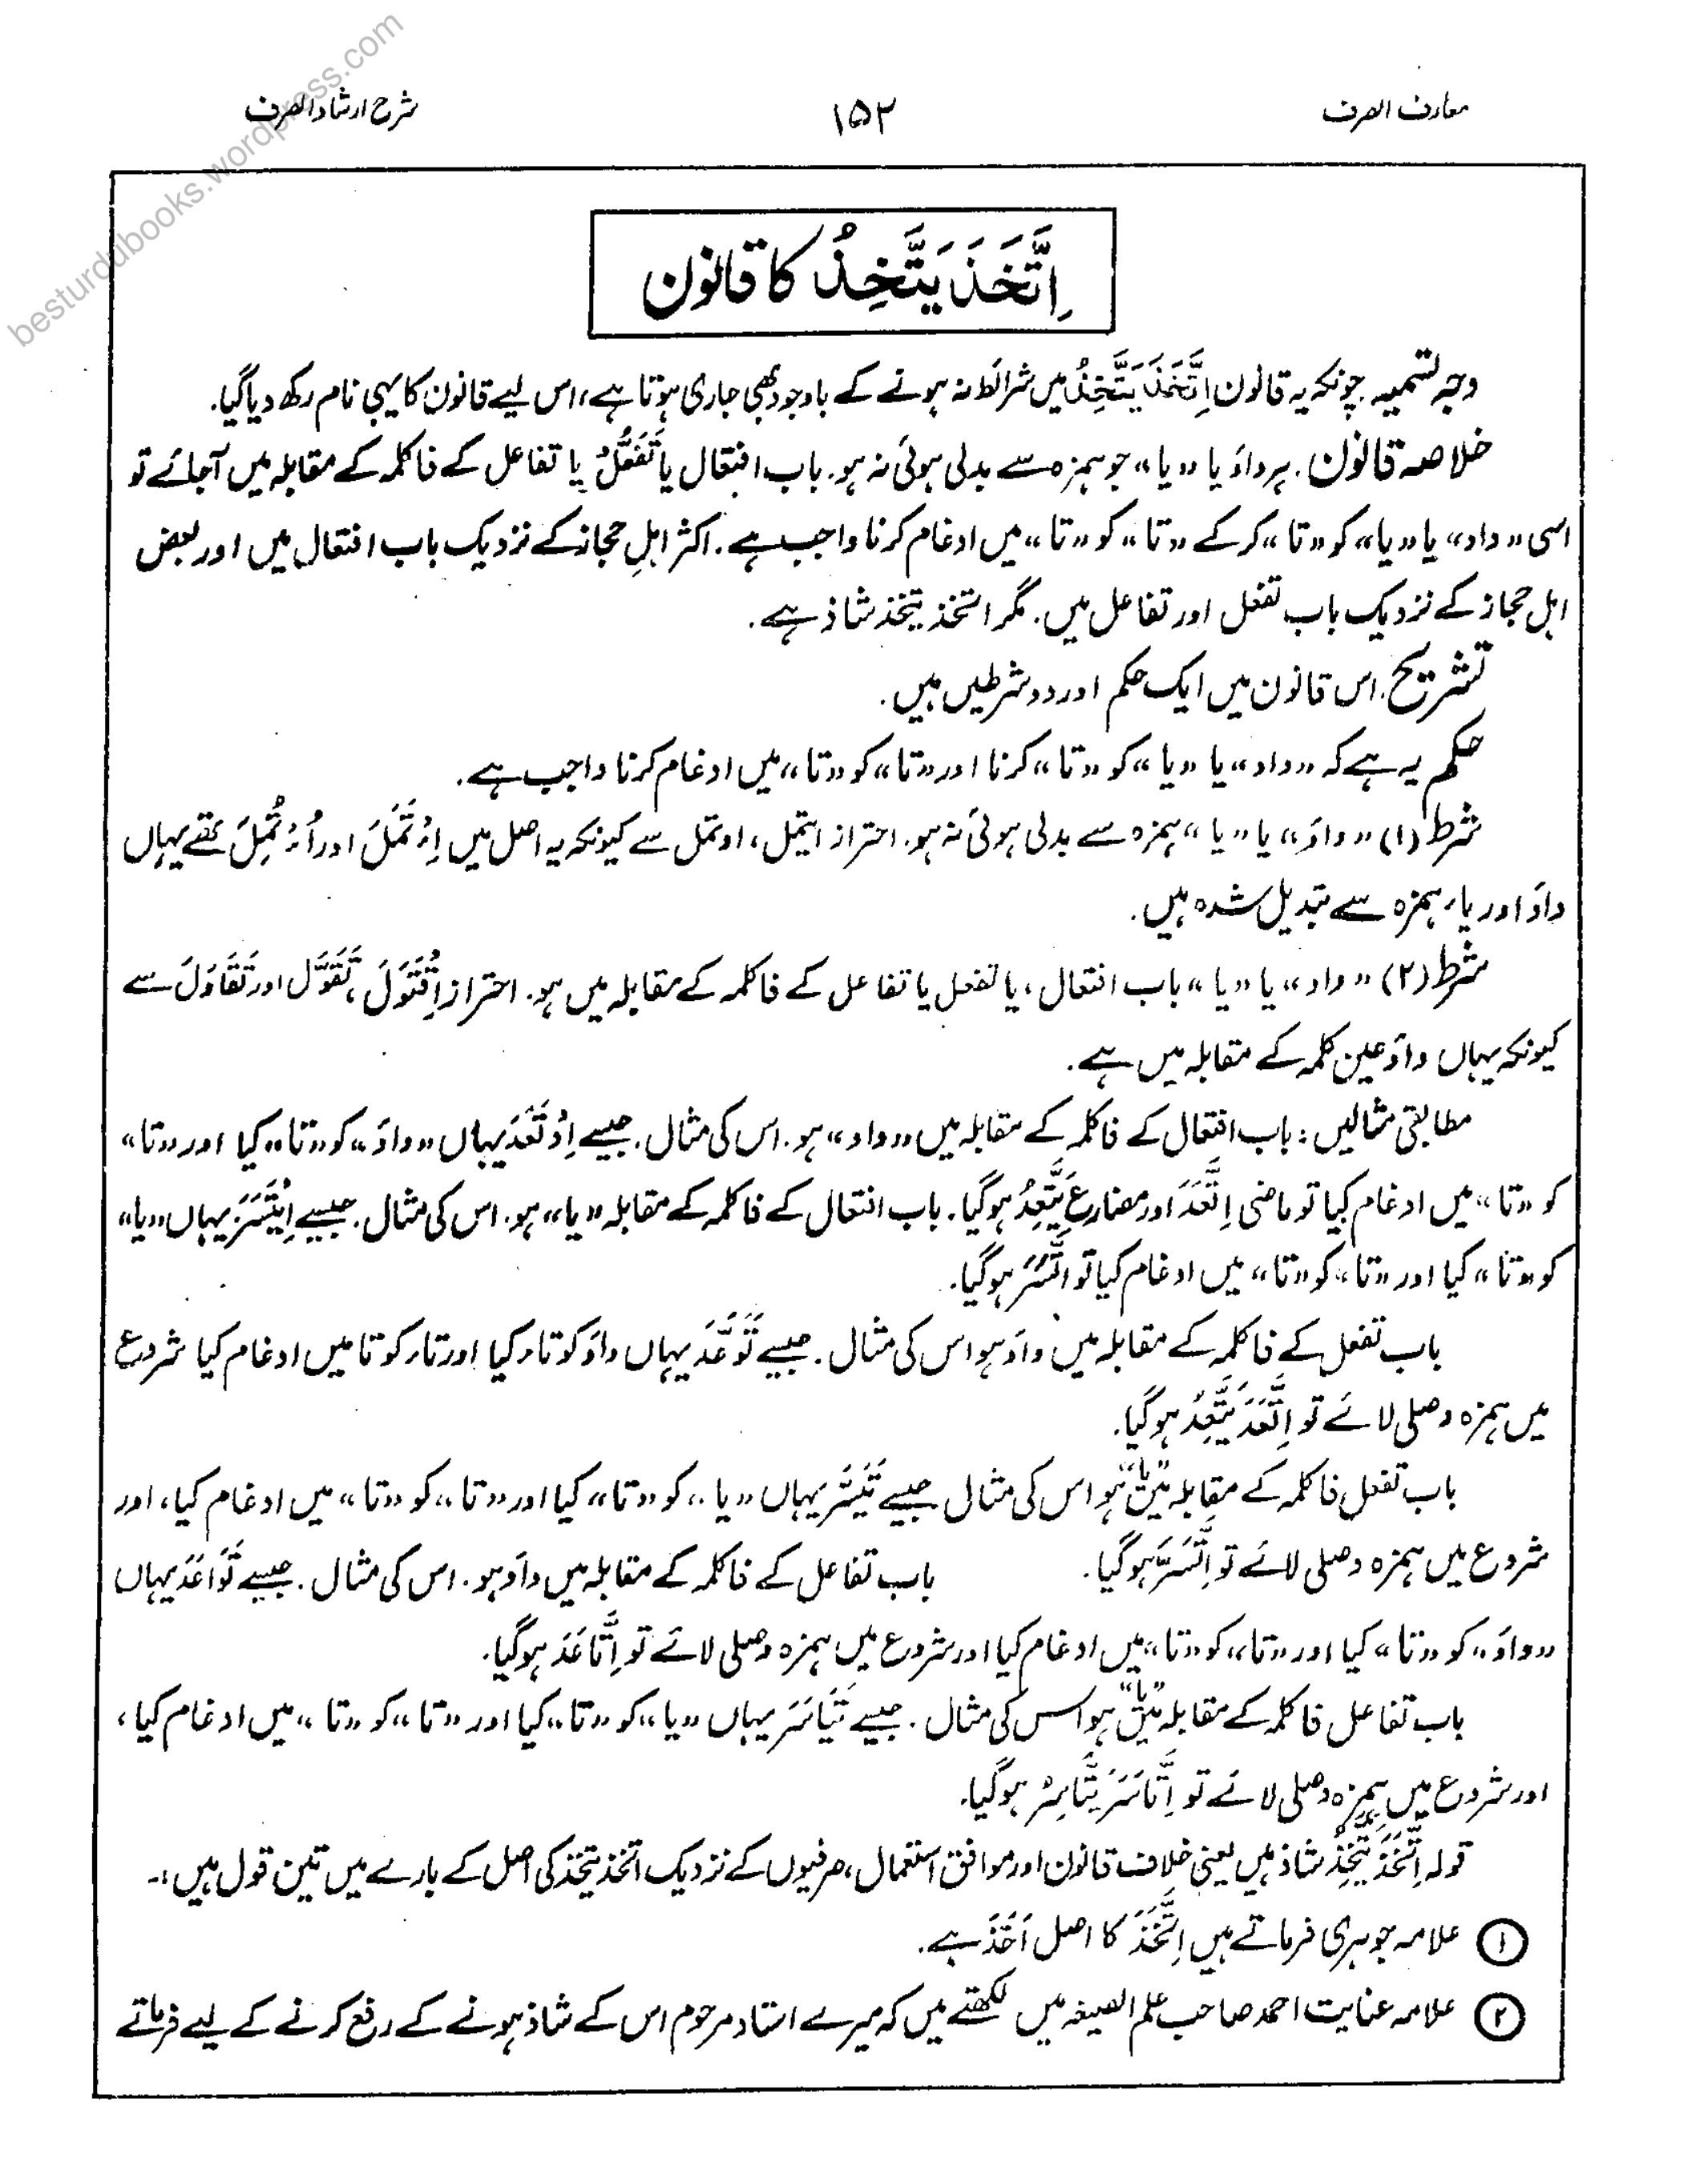 معارف الصرف ۱۵۲ شرح ارشاد الصرف
besturdubooks.wordpress.com
اِتَّخَذَ يَتَّخِذُ کا قانون
وجہ تسمیہ چونکہ یہ قانون اِتَّخَذَ يَتَّخِذُ میں شرائط نہ ہونے کے باوجود بھی جاری ہوتا ہے، اس لیے قانون کا یہی نام رکھ دیا گیا.
خلاصہ قانون. ہر واؤ یا «یا» جو ہمزہ سے بدلی ہوئی نہ ہو. باب افتعال یا تَفَعُّلْ یا تفاعل کے فا کلمہ کے مقابلہ میں آجائے تو
اسی «واو» یا «یا» کو «تا» کر کے «تا» کو «تا» میں ادغام کرنا واجب ہے. اکثر اہلِ حجاز کے نزدیک باب افتعال میں اور بعض
اہل حجاز کے نزدیک باب تفعل اور تفاعل میں. مگر اتخذ یتخذ شاذ ہے.
تشریح. اس قانون میں ایک حکم اور دو شرطیں ہیں.
حکم یہ ہے کہ «واو» یا «یا» کو «تا» کرنا اور «تا» کو «تا» میں ادغام کرنا واجب ہے.
شرط (۱) «واؤ» یا «یا» ہمزہ سے بدلی ہوئی نہ ہو. احتراز ایتمل، اوتمل سے کیونکہ یہ اصل میں اِءْتَمَلَ اور اُءْتُمِلَ تھے یہاں
واؤ اور یاء ہمزہ سے تبدیل شدہ ہیں.
شرط (۲) «واو» یا «یا» باب افتعال، یا تفعل یا تفاعل کے فا کلمہ کے مقابلہ میں ہو. احتراز اِقْتَوَلَ، تَقَوَّلَ اور تَقَاوَلَ سے
کیونکہ یہاں واؤ عین کلمہ کے مقابلہ میں ہے.
مطابقتی مثالیں: باب افتعال کے فا کلمہ کے مقابلہ میں «واو» ہو. اس کی مثال. جیسے اِوْتَعَدَ یہاں «واؤ» کو «تا» کیا اور «تا»
کو «تا» میں ادغام کیا تو ماضی اِتَّعَدَ اور مضارع يَتَّعِدُ ہوگیا. باب افتعال کے فا کلمہ کے مقابلہ «یا» ہو. اس کی مثال. جیسے اِيْتَسَرَ یہاں «یا»
کو «تا» کیا اور «تا» کو «تا» میں ادغام کیا تو اتَّسَرَ ہوگیا.
باب تفعل کے فا کلمہ کے مقابلہ میں واؤ ہو اس کی مثال. جیسے تَوَعَّدَ یہاں واؤ کو تاء کیا اور تاء کو تا میں ادغام کیا شروع
میں ہمزہ وصلی لائے تو اِتَّعَّدَ يَتَّعَّدُ ہوگیا.
باب تفعل فا کلمہ کے مقابلہ میں «یا» ہو اس کی مثال جیسے تَيَسَّرَ یہاں «یا» کو «تا» کیا اور «تا» کو «تا» میں ادغام کیا، اور
شروع میں ہمزہ وصلی لائے تو اِتَّسَّرَ ہوگیا. باب تفاعل کے فا کلمہ کے مقابلہ میں واؤ ہو. اس کی مثال. جیسے تَوَاعَدَ یہاں
«واؤ» کو «تا» کیا اور «تا» کو «تا» میں ادغام کیا اور شروع میں ہمزہ وصلی لائے تو اِتَّاعَدَ ہوگیا.
باب تفاعل فا کلمہ کے مقابلہ میں «یا» ہو اس کی مثال. جیسے تَيَاسَرَ یہاں «یا» کو «تا» کیا اور «تا» کو «تا» میں ادغام کیا،
اور شروع میں ہمزہ وصلی لائے تو اِتَّاسَرَ يَتَّاسَرُ ہوگیا.
قولہ اِتَّخَذَ يَتَّخِذُ شاذ ہیں یعنی خلاف قانون اور موافق استعمال، صرفیوں کے نزدیک اتخذ یتخذ کی اصل کے بارے میں تین قول ہیں:-
① علامہ جوہری فرماتے ہیں اِتَّخَذَ کا اصل اَخَذَ ہے.
② علامہ عنایت احمد صاحب علم الصیغہ میں لکھتے ہیں کہ میرے استاد مرحوم اس کے شاذ ہونے کے رفع کرنے کے لیے فرماتے